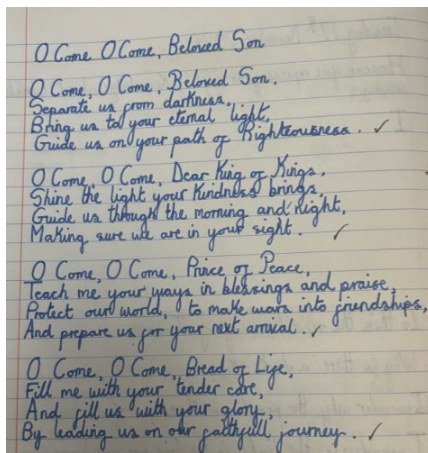 O Come O Come, Beloved Son
O Come, O Come, Beloved Son.
Separate us from darkness,
Bring us to your eternal light,
Guide us on your path of Righteousness. ✓
O Come, O Come, Dear King of Kings,
Shine the light your kindness brings,
Guide us through the morning and night,
Making sure we are in your sight. ✓
O Come, O Come, Prince of Peace,
Teach me your ways in blessings and praise,
Protect our world, to make wars into friendships,
And prepare us for your next arrival. ✓
O Come, O Come, Bread of Life,
Fill me with your tender care,
And fill us with your glory,
By leading us on our faithfull journey. ✓